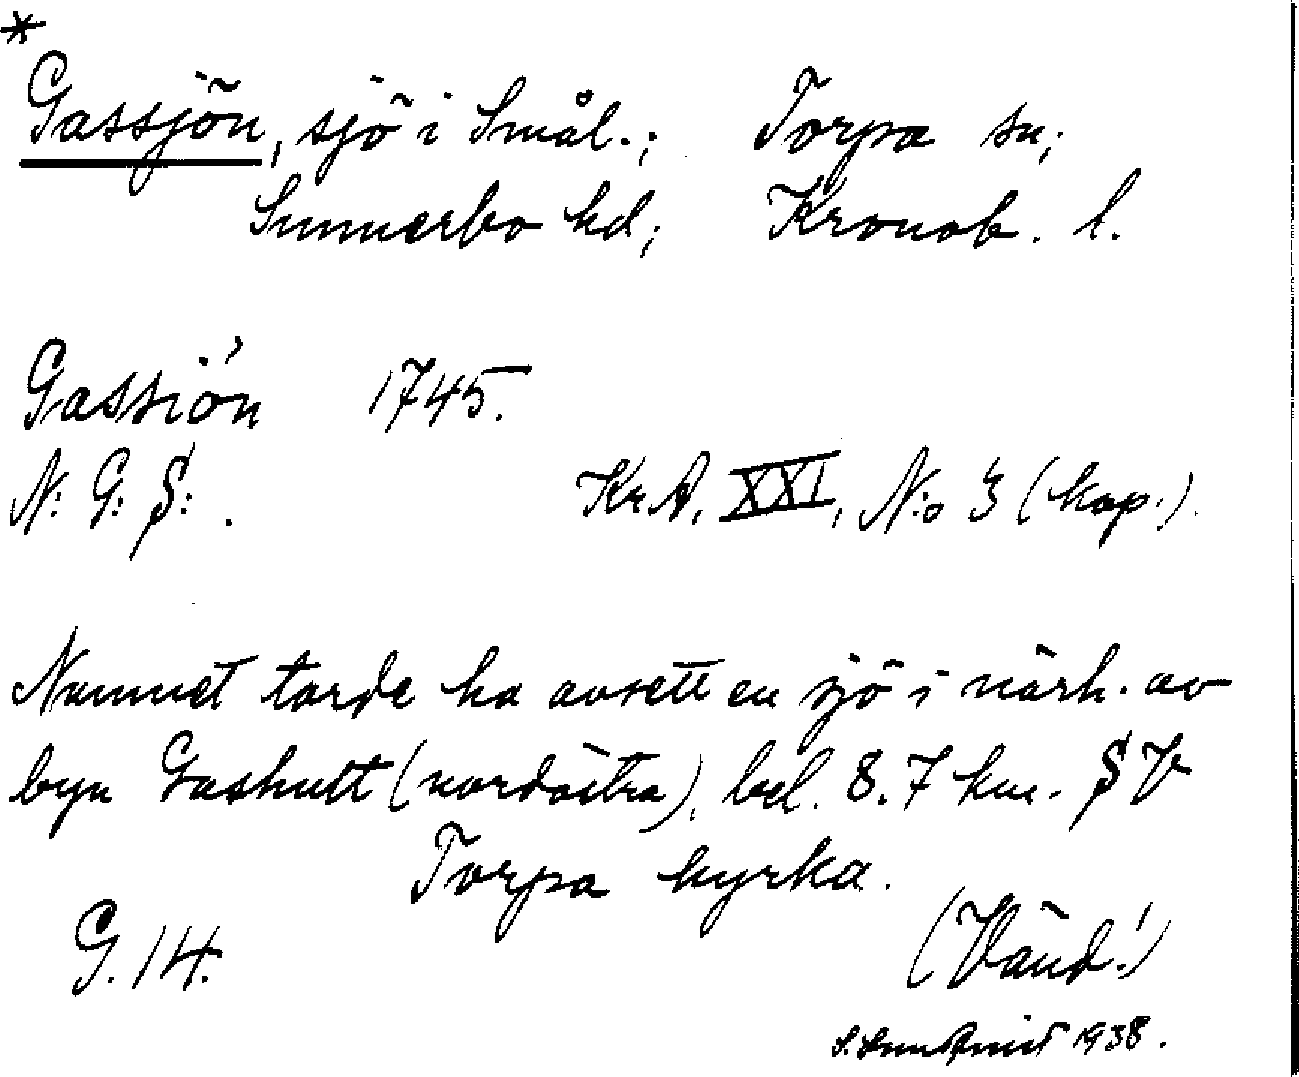 *
Gassjön, sjö i Smål.; Torpa sn;
Sunnerbo hd; Kronob. l.
Gassiön 1745.
N: G: S: . Kr.A. XXI, N:o 3 (kop.).
Namnet torde ha avsett en sjö i närh. av
byn Gashult (nordöstra), bel. 8.7 km. SV
Torpa kyrka.
G. 14. (Vänd!)
1938.